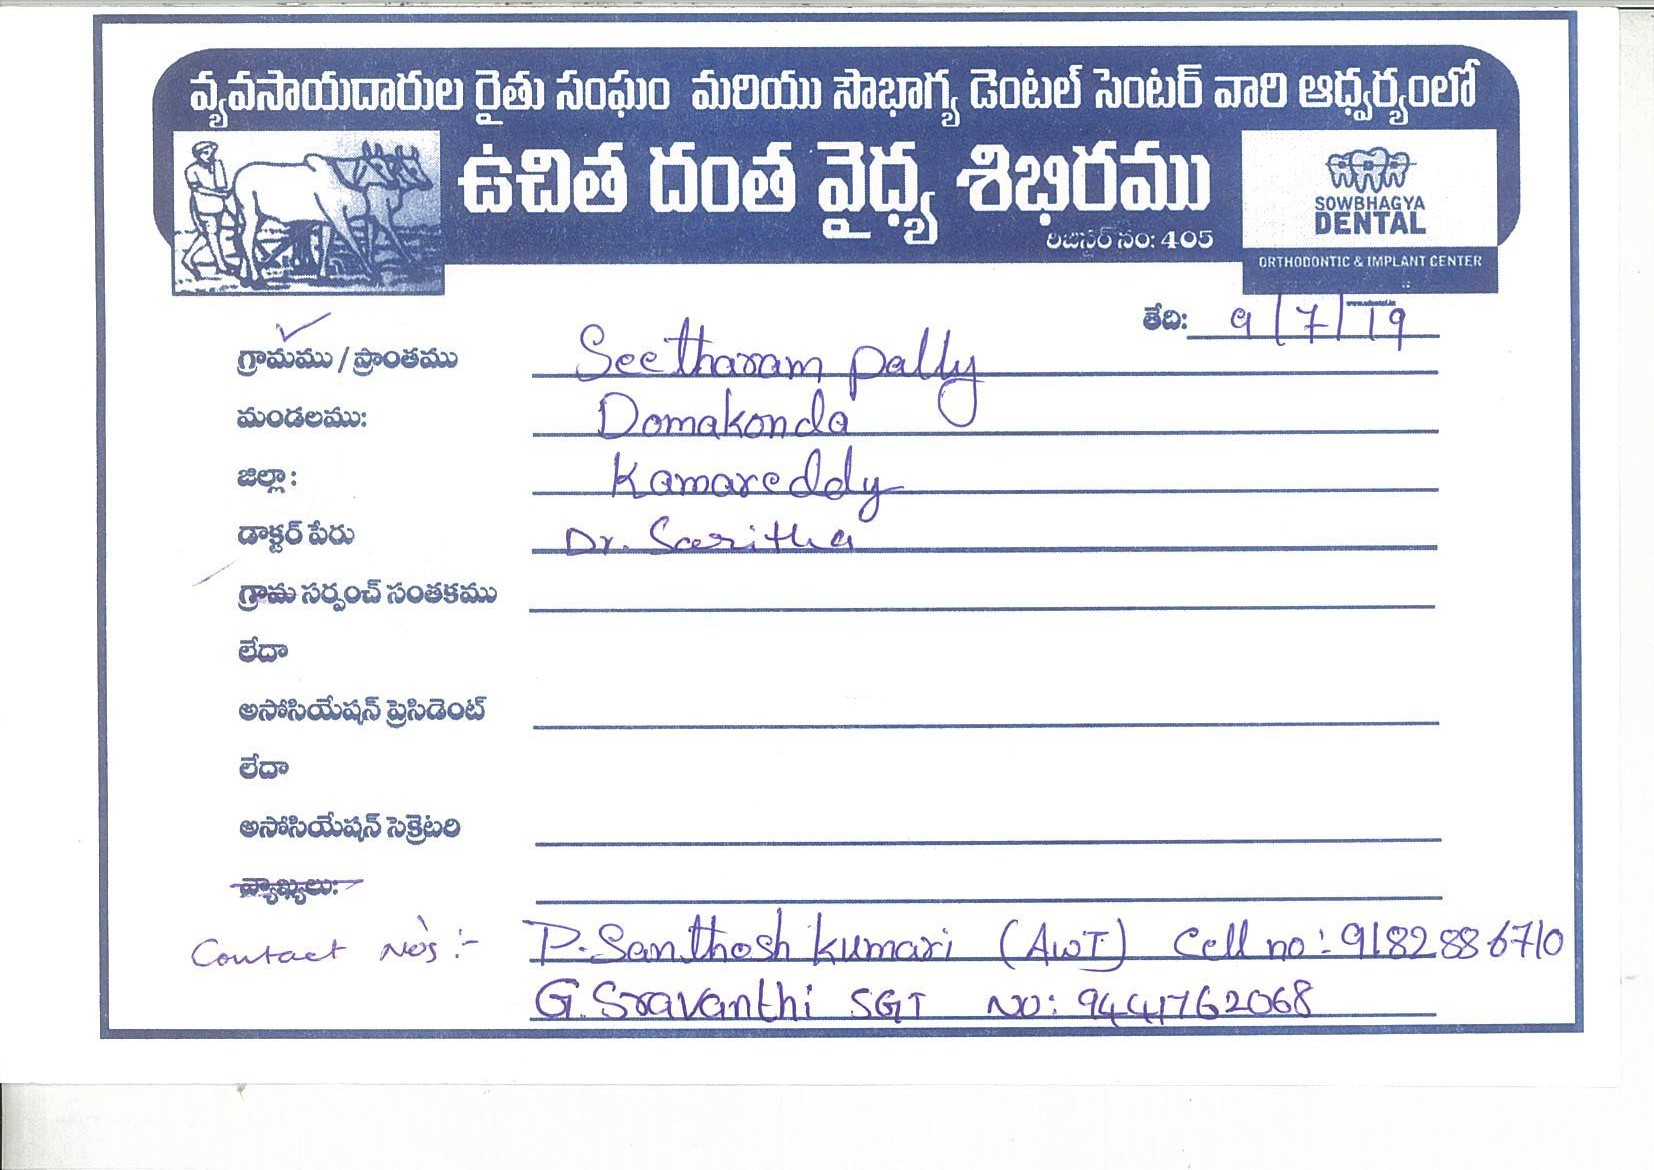 వ్యవసాయదారుల రైతు సంఘం మరియు సౌభాగ్య డెంటల్ సెంటర్ వారి ఆధ్వర్యంలో
ఉచిత దంత వైధ్య శిభిరము
రిజిస్టర్ నం: 405
SOWBHAGYA
DENTAL
ORTHODONTIC & IMPLANT CENTER
తేది: 9/7/19
గ్రామము / ప్రాంతము Seetharam pally
మండలము: Domakonda
జిల్లా: Kamareddy
డాక్టర్ పేరు Dr. Saritha
గ్రామ సర్పంచ్ సంతకము
లేదా
అసోసియేషన్ ప్రెసిడెంట్
లేదా
అసోసియేషన్ సెక్రెటరి
వ్యాఖ్యలు:
Contact No's :- P. Santhosh kumari (AWT) Cell no: 9182886710
G. Sravanthi SGT NO: 9441762068